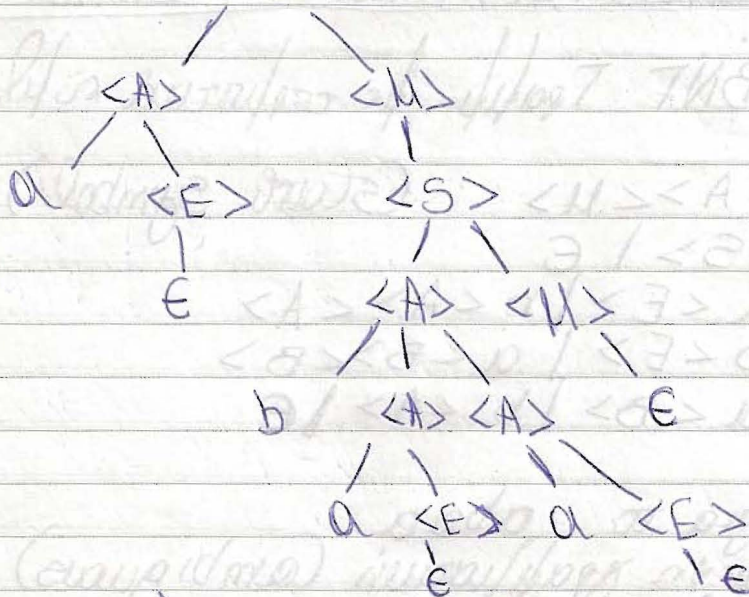 <A> <M>
a <E> <S>
ϵ <A> <M>
b <A> <A> ϵ
a <E> a <E>
ϵ ϵ